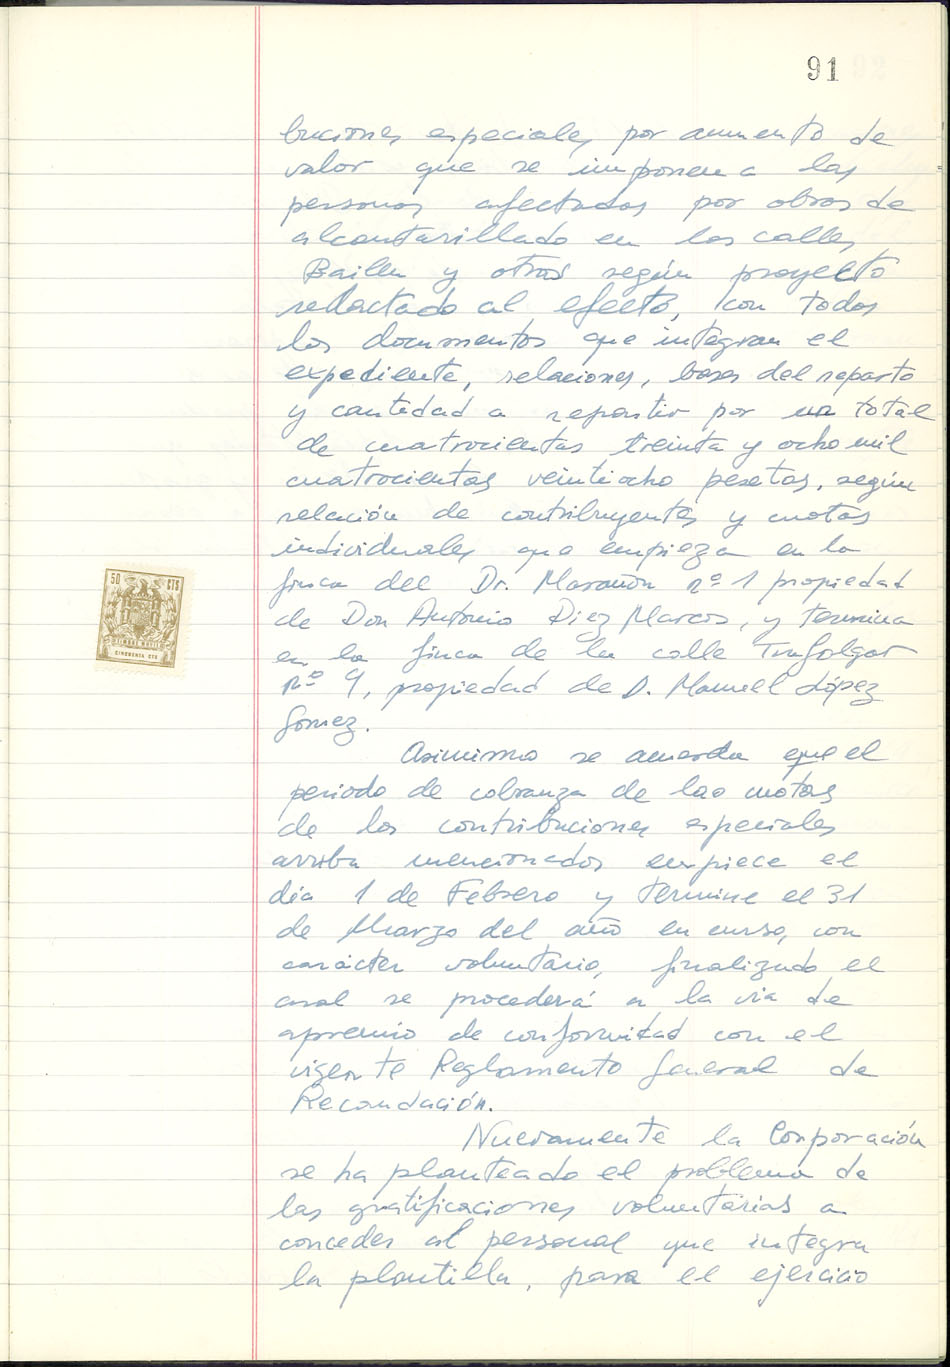 91
buciones especiales por aumento de
valor que se imponen a las
personas afectadas por obras de
alcantarillado en las calles
Bailen y otras según proyecto
redactado al efecto, con todos
los documentos que integran el
expediente, relaciones, bases del reparto
y cantidad a repartir por un total
de cuatrocientas treinta y ocho mil
cuatrocientas veintiocho pesetas, según
relación de contribuyentes y cuotas
individuales que empieza en la
finca del Dr. Marañon nº 1 propiedad
de Don Antonio Diez Marcos, y termina
en la finca de la calle Trafalgar
nº 9, propiedad de D. Manuel López
Gomez.
Asimismo se acuerda que el
periodo de cobranza de las cuotas
de las contribuciones especiales
arriba mencionadas empiece el
día 1 de Febrero y termine el 31
de Marzo del año en curso, con
carácter voluntario, finalizado el
cual se procederá a la via de
apremio de conformidad con el
vigente Reglamento General de
Recaudación.
Nuevamente la Corporación
se ha planteado el problema de
las gratificaciones voluntarias a
conceder al personal que integra
la plantilla, para el ejercicio
50 CTS
TIMBRE MOVIL
CINCUENTA CTS